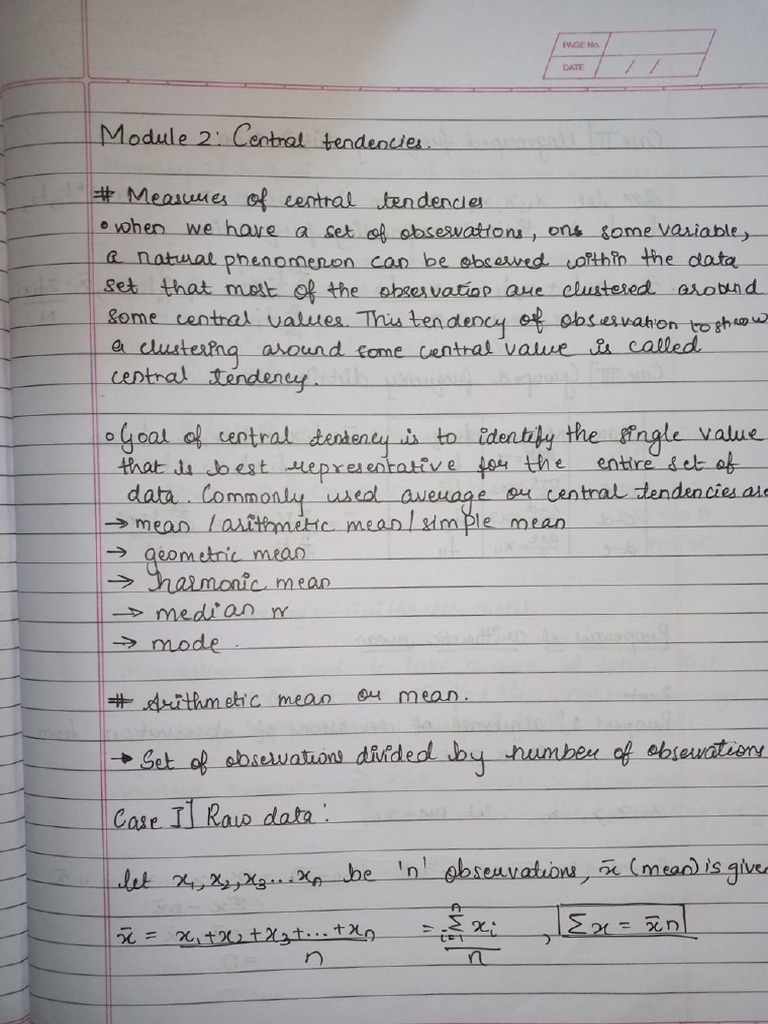 PAGE No.
DATE / /
Module 2: Central tendencies.
# Measures of central tendencies
• when we have a set of observations, on some variable,
a natural phenomenon can be observed within the data
set that most of the observation are clustered around
some central values. This tendency of observation to show
a clustering around some central value is called
central tendency.
• Goal of central tendency is to identify the single value
that is best representative for the entire set of
data. Commonly used average or central tendencies are
→ mean / arithmetic mean / simple mean
→ geometric mean
→ harmonic mean
→ median
→ mode.
# Arithmetic mean or mean.
→ Set of observations divided by number of observations
Case I] Raw data:
let x₁, x₂, x₃...xₙ be 'n' observations, x̄ (mean) is given
x̄ = x₁+x₂+x₃+...+xₙ / n = Σⁿᵢ₌₁ xᵢ / n , Σx = x̄n